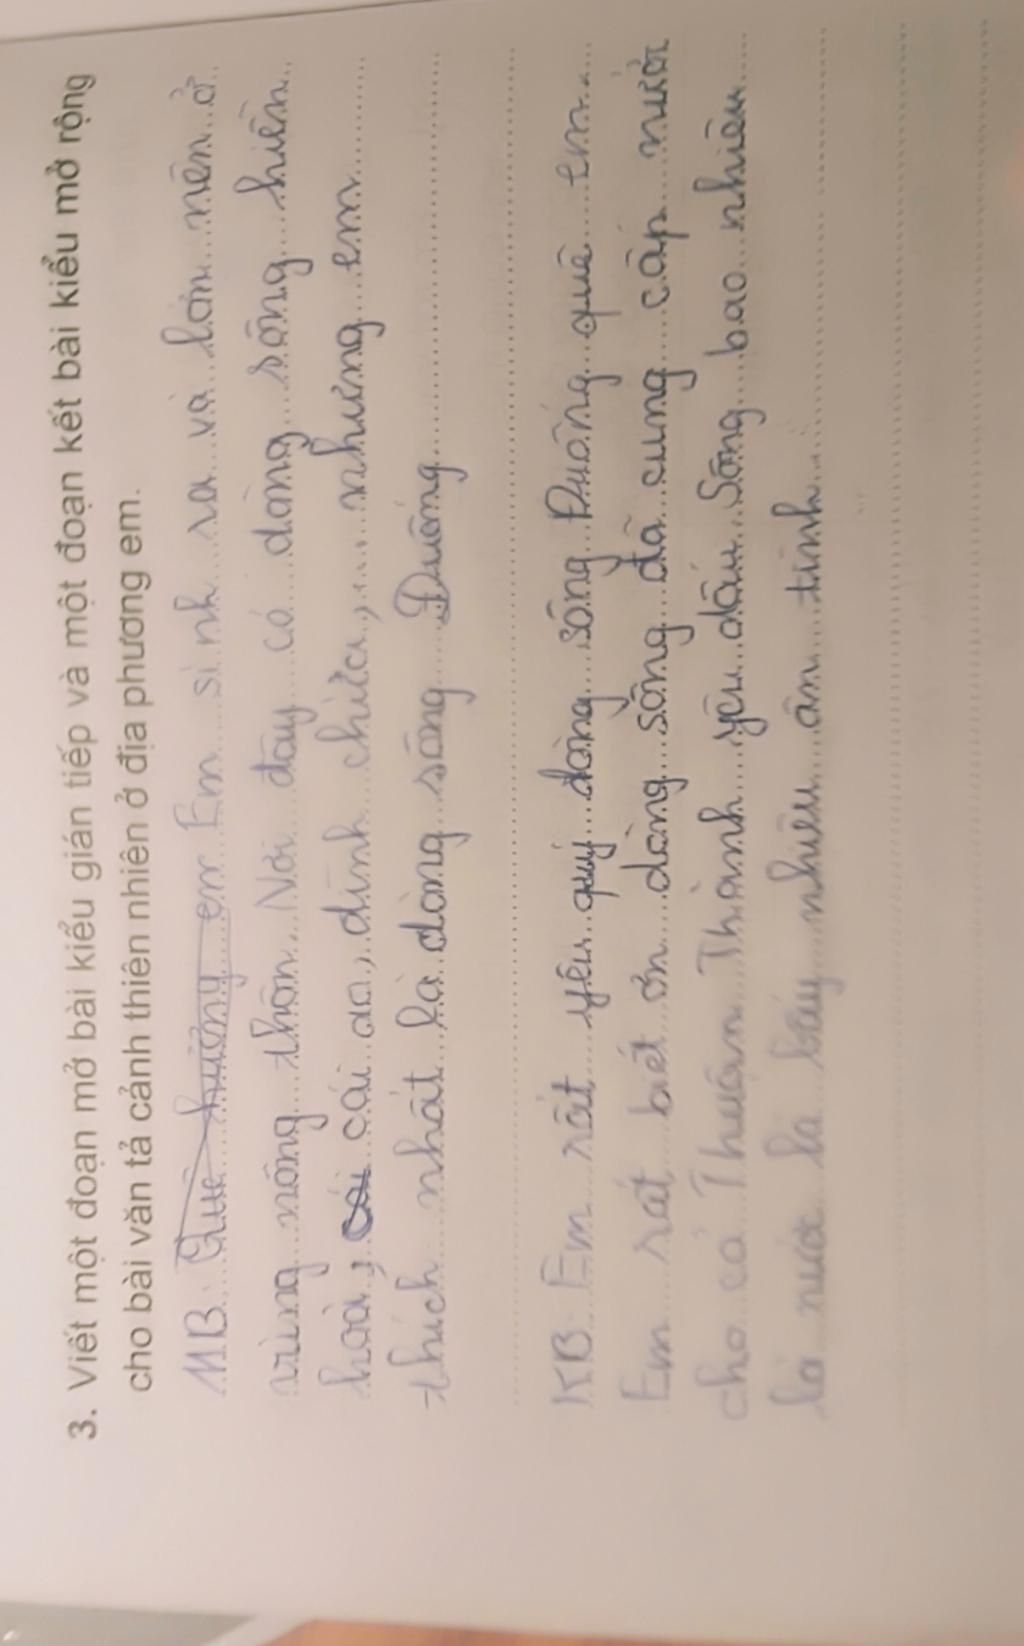 3. Viết một đoạn mở bài kiểu gián tiếp và một đoạn kết bài kiểu mở rộng
cho bài văn tả cảnh thiên nhiên ở địa phương em.
MB Quê hương em Em sinh ra và lớn nên ở
vùng nông thôn. Nơi đây có dòng sông hiền
hoà, cái cái ao, đình chùa, nhưng em
thích nhất là dòng sông Đuống
KB Em rất yêu quý dòng sông Đuống quê em.
Em rất biết ơn dòng sông đã cung cấp nước
cho cả Thuận Thành yêu dấu. Sông bao nhiêu
là nước là bấy nhiêu ân tình.